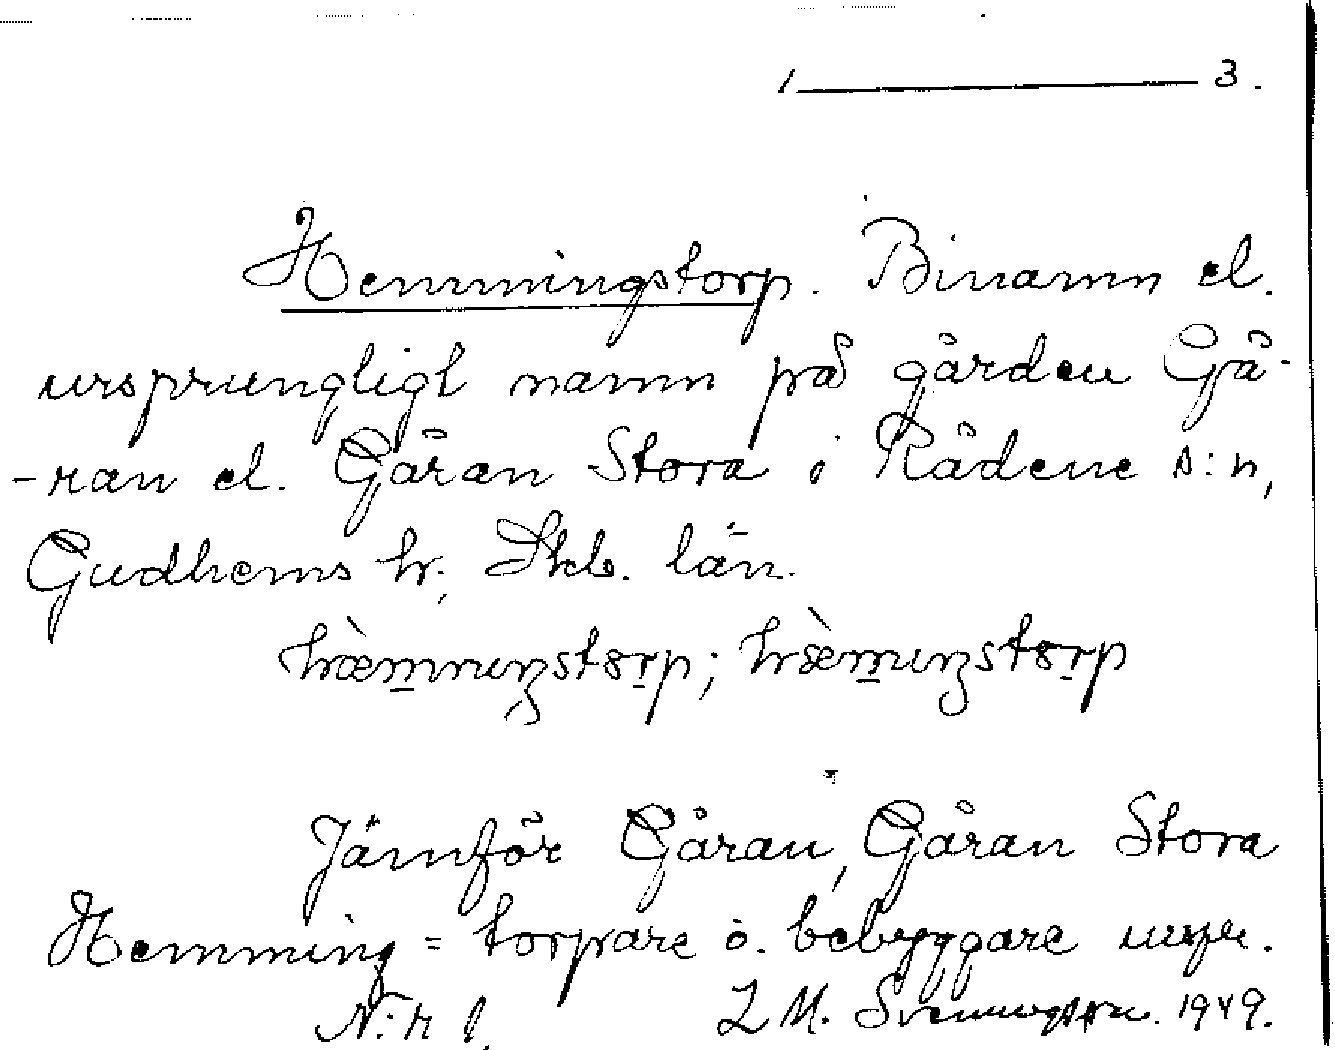 1 ——— 3.
Hemmingstorp. Binamn el.
ursprungligt namn på gården Gå-
-ran el. Gåran Stora i Rådene s:n,
Gudhems hr, Skb. län.
hæ̀mıŋstorp; hæ̀mıŋstorp
Jämför Gåran, Gåran Stora
Hemming = torpare o. bebyggare urspr.
N:r 1. L M. Svenungsson. 1949.